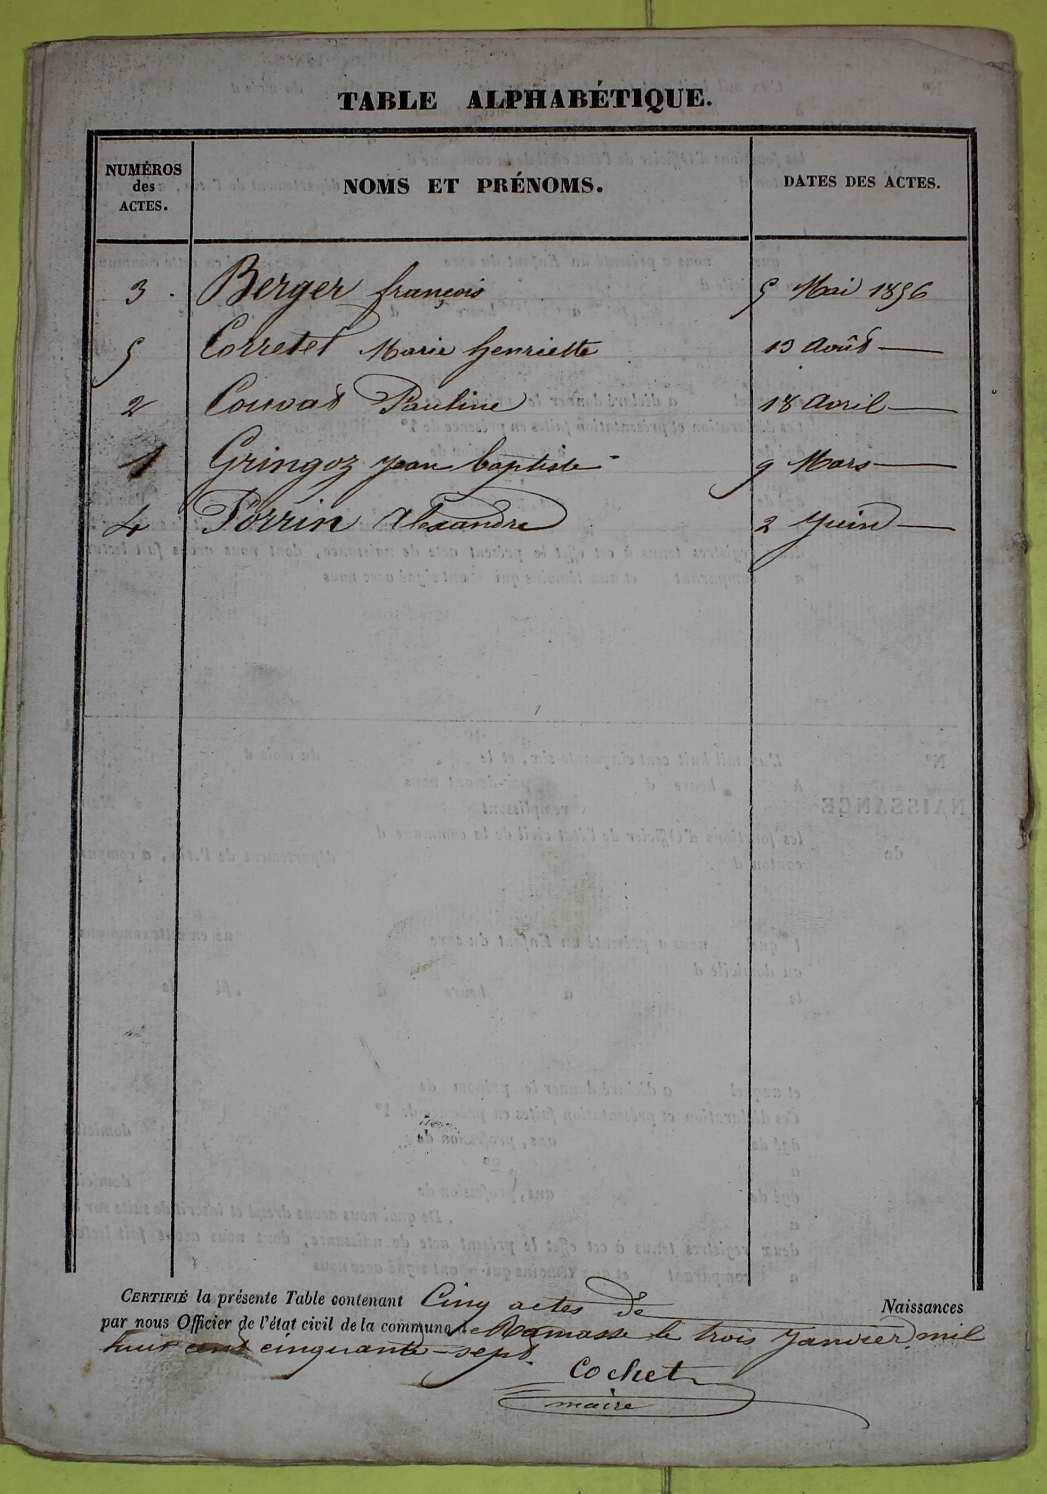 TABLE ALPHABÉTIQUE.
NUMÉROS des ACTES.
NOMS ET PRÉNOMS.
DATES DES ACTES.
3 Berger françois 5 Mai 1856
5 Corretel Marie henriette 13 Août —
2 Couvat Pauline 18 Avril —
1 Gringoz Jean baptiste 9 Mars —
4 Perrin Alexandre 2 Juin —
CERTIFIÉ la présente Table contenant Cinq actes de Naissances
par nous Officier de l'état civil de la commune de Ramasse le trois Janvier mil
huit cent cinquante-sept.
Cochet
maire